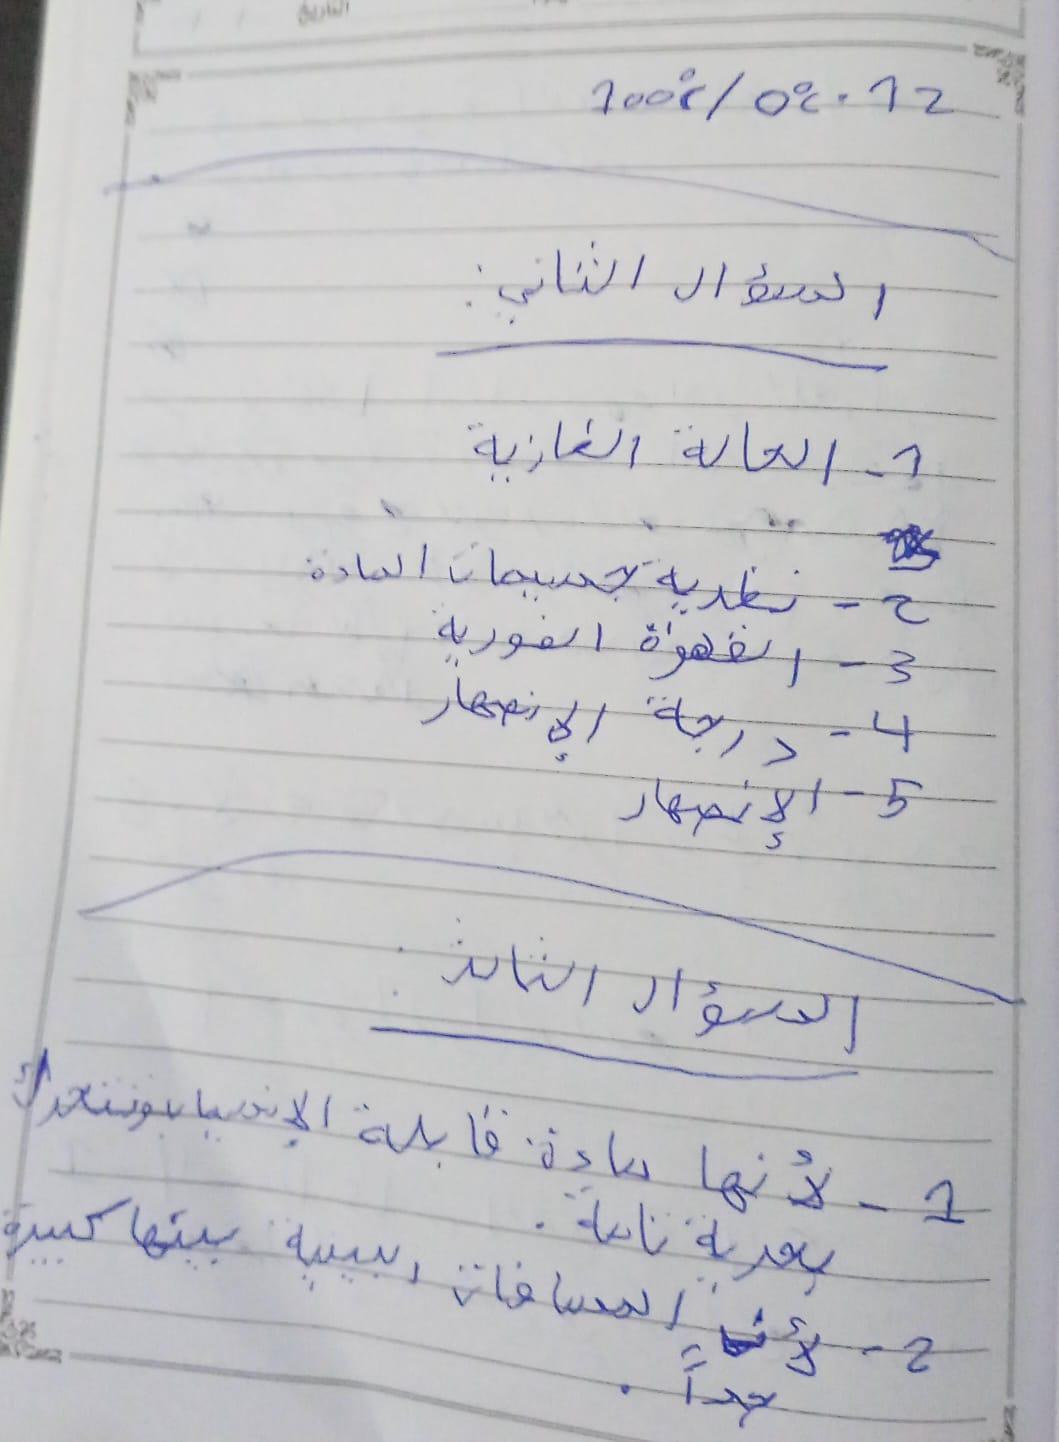 التاريخ
12. 0℃ / 100℃
السؤال الثاني:
1- الحالة الغازية
2- نظرية جسيمات المادة
3- القهوة الفورية
4- درجة الإنصهار
5- الإنصهار
السؤال الثالث:
1- لأنها مادة قابلة الإنسياب وتتحرك
بحرية تامة.
2- لأن المسافات البينية بينها كبيرة
جداً.